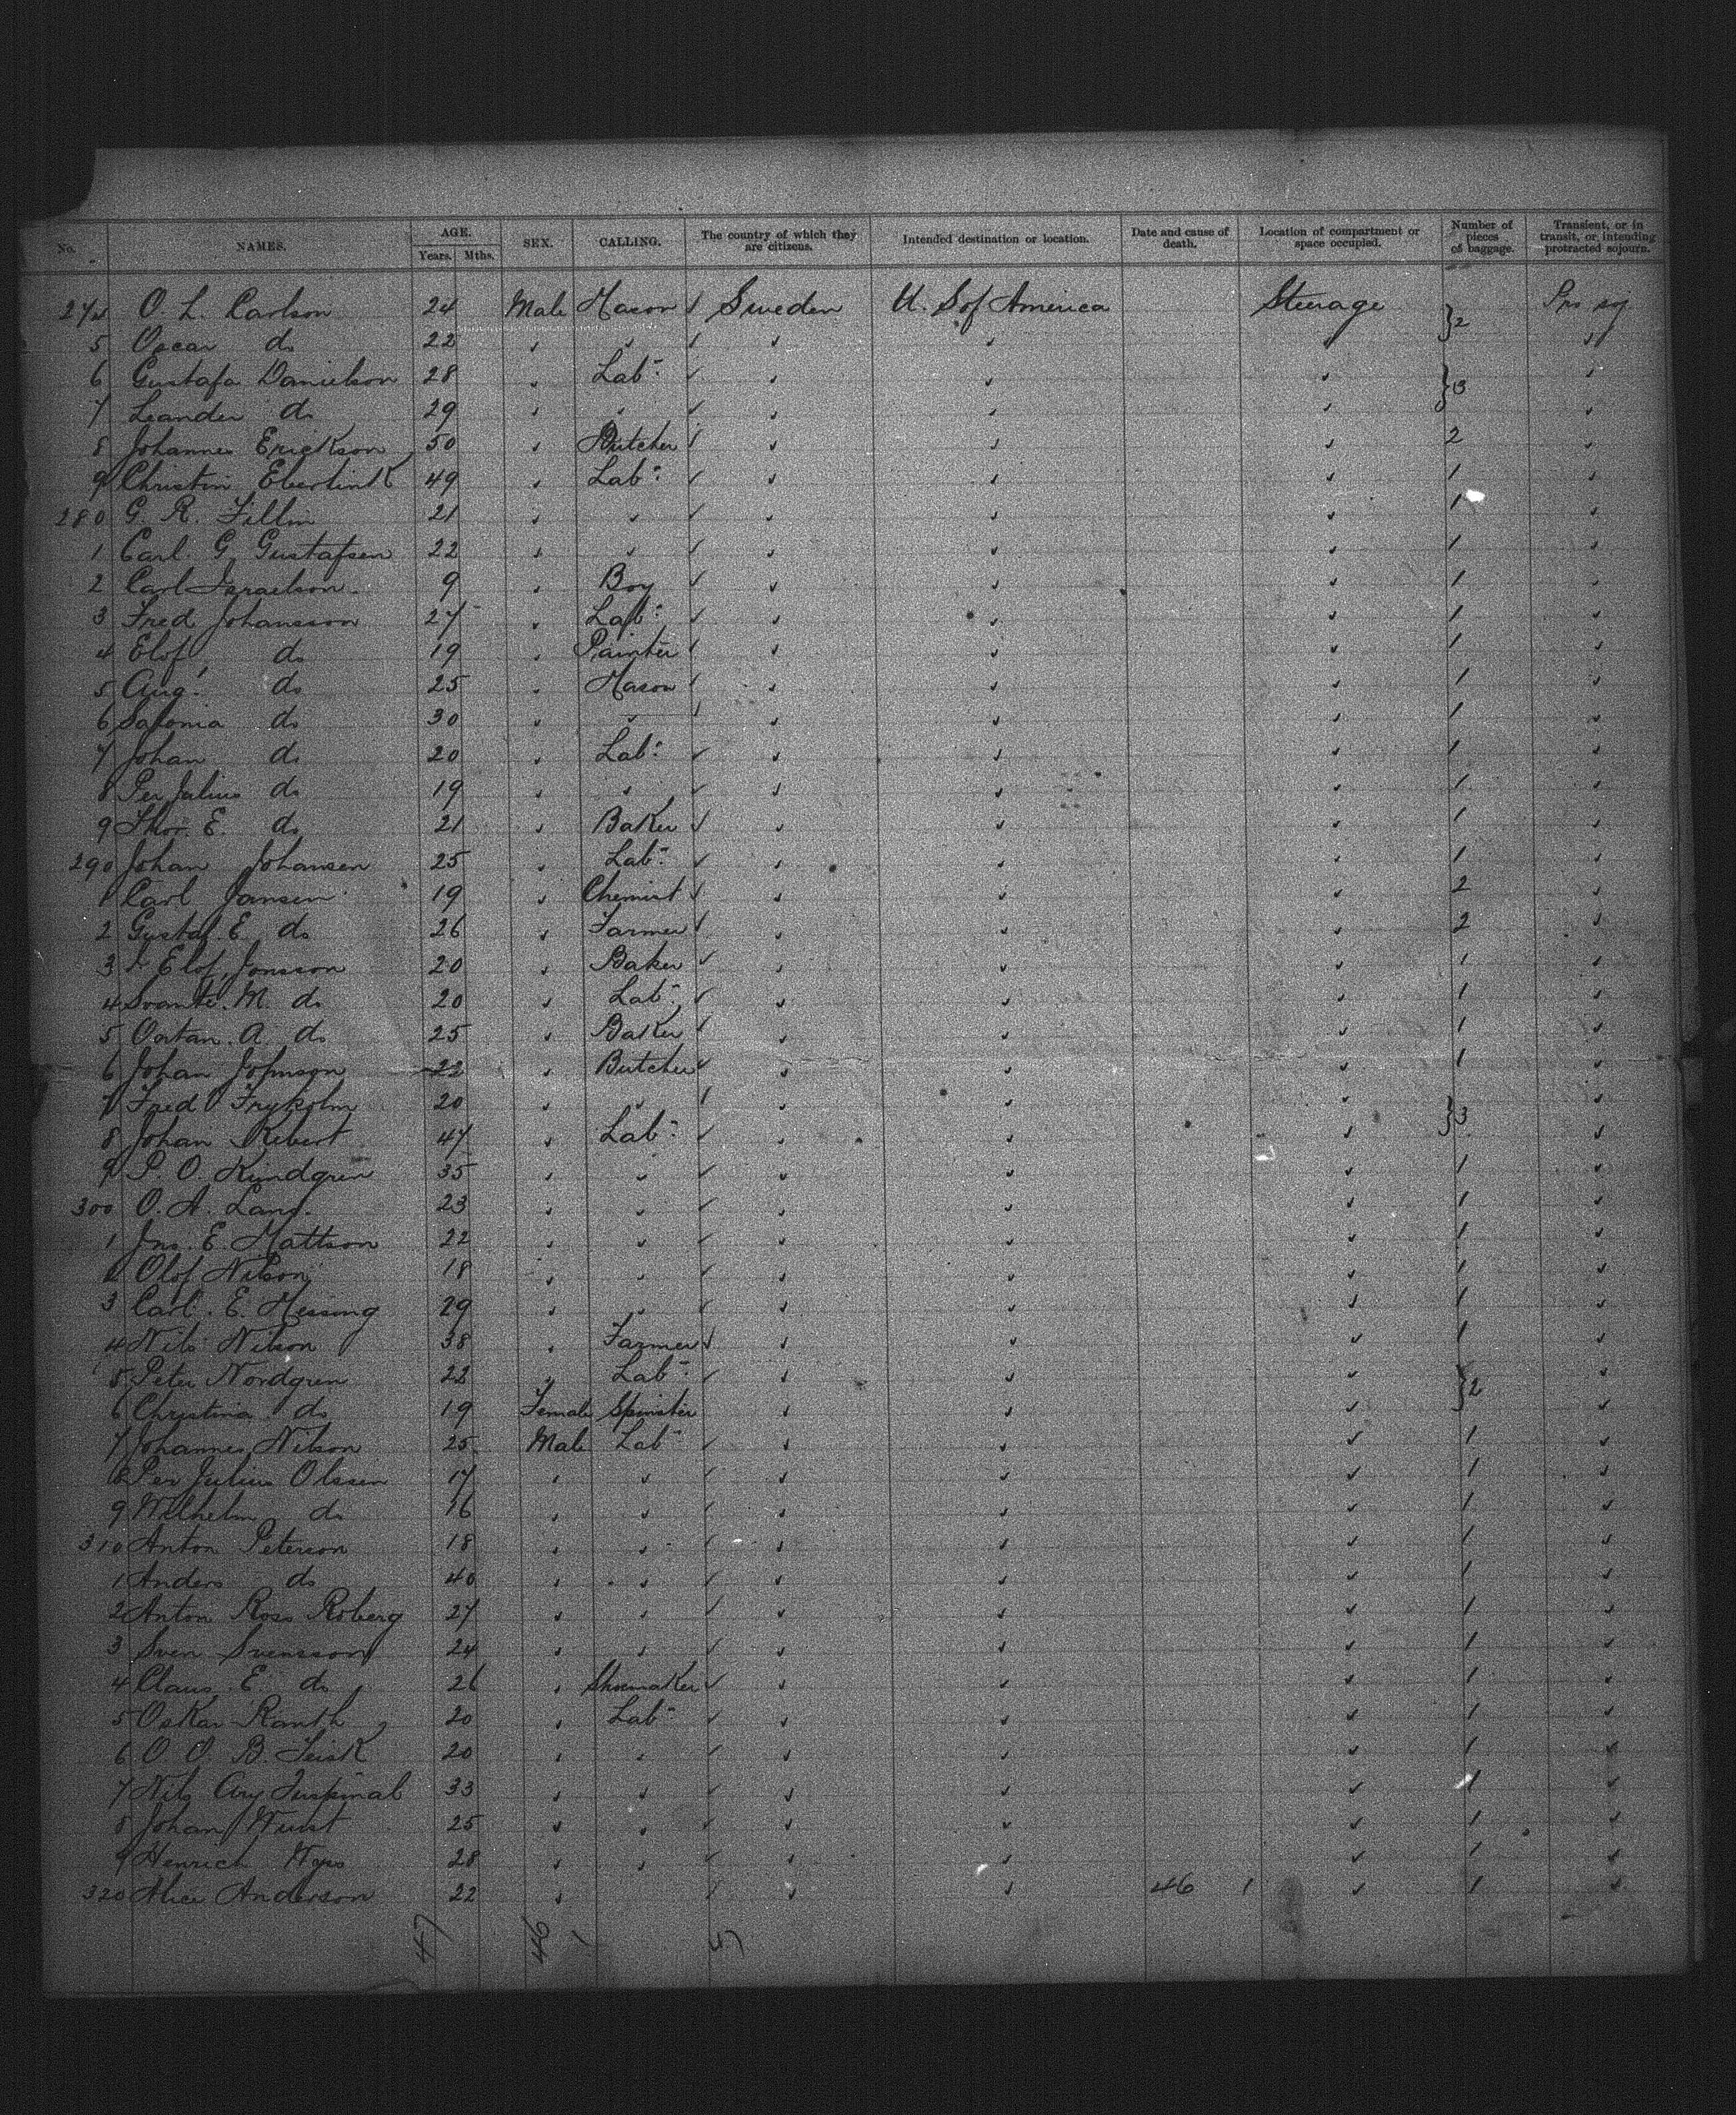 No. NAMES. AGE. Years. Mths. SEX. CALLING. The country of which they are citizens. Intended destination or location. Date and cause of death. Location of compartment or space occupied. Number of pieces of baggage. Transient, or in transit, or intending protracted sojourn.
274 O. L. Carlson 24 Male Mason Sweden U. S of America Steerage } 2 Pro soj.
5 Oscar do 22
6 Gustafa Danielson 28 Lab } 3
7 Leander do 29
8 Johannes Erickson 50 Butcher 2
9 Christin 49 Lab 1
280 G. R. Fillin 21 1
1 Carl G. Gustafsen 22 1
2 Carl Israelson 9 Boy 1
3 Fred Johansson 27 Lab 1
4 Elof do 19 Painter 1
5 Aug. do 25 Mason 1
6 do 30 1
7 Johan do 20 Lab 1
8 Per Julius do 19 1
9 Thor. E. do 21 Baker 1
290 Johan Johansen 25 Lab 1
1 Carl Jansen 19 Chemist 2
2 Gustaf. E do 26 Farmer 2
3 Elof Jonsson 20 Baker 1
4 Svante. M. do 20 Lab 1
5 A. do 25 Baker 1
6 Johan Johnson 22 Butcher 1
7 Fred Frykolm 20 } 3
8 Johan 47 Lab
9 P. O. Kindgren 35 1
300 O. A. Lang. 23 1
1 Jno. E. Mattson 22 1
2 Olof Nilson 18 1
3 Carl. E. Messing 29 1
4 Nils Nilson 38 Farmer 1
5 Peter Nordgren 22 Lab } 2
6 Christina do 19 Female Spinster
7 Johannes Nilson 25 Male Lab 1
8 Per Julius Olssen 17 1
9 Wilhelm do 16 1
310 Anton Peterson 18 1
1 Anders do 40 1
2 Anton Ross Roberg 27 1
3 Sven Svensson 24 1
4 Claus. E. do 26 Shoemaker 1
5 Oskar Ranth 20 Lab 1
6 O. O. B. 20 1
7 Nils 33 1
8 Johan Wurst 25 1
9 Henrich Wyss 28 1
320 Alice Anderson 22 46 1 1
47 46 1